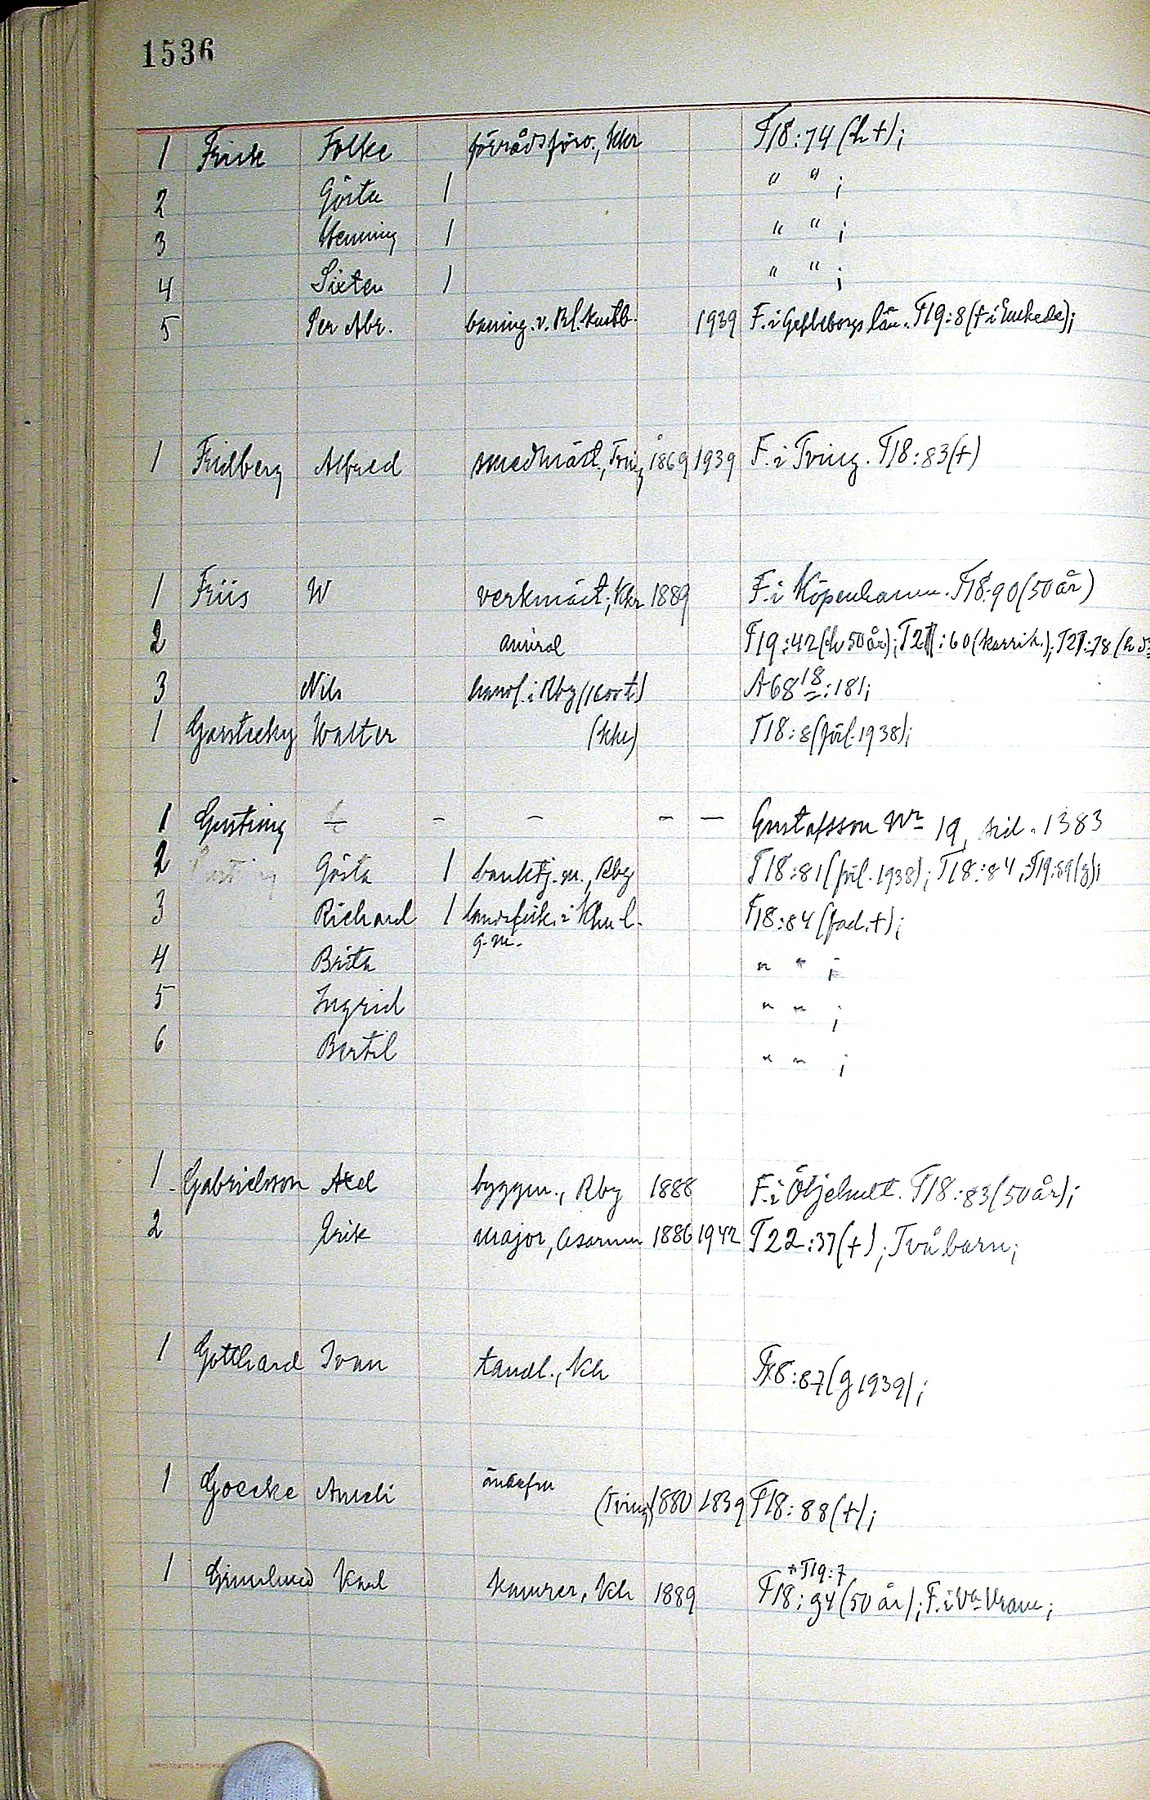 1536
1 Frick Folke förrådsförv., Kkr T18:74 (h †);
2 Gösta 1 " " ;
3 Henning 1 " " ;
4 Sixten 1 " " ;
5 Per Abr. 1939 F. i Gefleborgs län. T19:8 († i
1 Fridberg Alfred smedmäst., Tving 1869 1939 F. i Tving. T18:83 (†)
1 Friis W verkmäst., Kkr 1889 F. i Köpenhamn. T18:90 (50 år)
2 amiral T19:42 (h 50 år); T21:60 (karrik.); T21:78 (h
3 Nils handl. i Rby (Kort) A68 18:181;
1 Walter (Khr) T18:8 (förl. 1938);
1 Gusting – – – – – Gustafsson Nr 19, sid. 1383
2 Gösta 1 banktj.m., Rby T18:81 (förl. 1938); T18:84, T19:89 (g);
3 Richard 1 landsfisk. i T18:84 (fad. †);
g.m.
4 Brita " " ;
5 Ingrid " " ;
6 Bertil " " ;
1 Gabrielsson Axel byggm., Rby 1888 F. i Öljehult. T18:83 (50 år);
2 Erik major, Asarum 1886 1942 T22:37 (†); Två barn;
1 Gotthard Ivan tandl., Kh T18:87 (g 1939);
1 Goecke Ameli änkefru (Tving) 1880 1839 T18:88 (†);
1 Karl kamrer, Kh 1889 T18:94 (50 år); F. i Va Vram;
+ T19:7